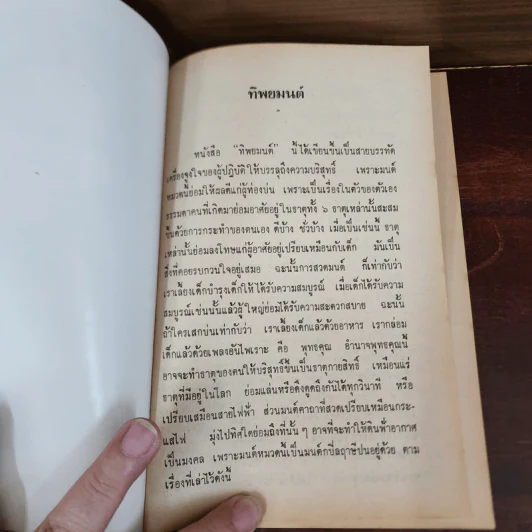 ทิพยมนต์
หนังสือ "ทิพยมนต์" นี้ได้เขียนขึ้นเป็นสายบรรทัด
เครื่องจูงใจของผู้ปฏิบัติให้บรรลุถึงความบริสุทธิ์ เพราะมนต์
หมวดนี้ย่อมให้ผลดีแก่ผู้ท่องบ่น เพราะเป็นเรื่องในตัวของตัวเอง
ธรรมดาคนที่เกิดมาย่อมอาศัยอยู่ในธาตุทั้ง ๖ ธาตุเหล่านั้นสะสม
ขึ้นด้วยการกระทำของตนเอง ดีบ้าง ชั่วบ้าง เมื่อเป็นเช่นนี้ ธาตุ
เหล่านั้นย่อมลงโทษแก่ผู้อาศัยอยู่เปรียบเหมือนกับเด็ก มันเป็น
สิ่งที่คอยรบกวนใจอยู่เสมอ ฉะนั้นการสวดมนต์ ก็เท่ากับว่า
เราเลี้ยงเด็กบำรุงเด็กให้ได้รับความสมบูรณ์ เมื่อเด็กได้รับความ
สมบูรณ์เช่นนั้นแล้วผู้ใหญ่ย่อมได้รับความสะดวกสบาย ฉะนี้
ถ้าใครเสกบ่นเท่ากับว่า เราเลี้ยงเด็กแล้วด้วยอาหาร เรากล่อม
เด็กแล้วด้วยเพลงอันไพเราะ คือ พุทธคุณ อำนาจพุทธคุณนี้
อาจจะทำธาตุของคนให้บริสุทธิ์ขึ้นเป็นธาตุกายสิทธิ์ เหมือนแร่
ธาตุที่มีอยู่ในโลก ย่อมแล่นหรือดึงดูดถึงกันได้ทุกวินาที หรือ
เปรียบเสมือนสายไฟฟ้า ส่วนมนต์คาถาที่สวดเปรียบเหมือนกระ-
แสไฟ มุ่งไปทิศใดย่อมถึงที่นั้น ๆ อาจที่จะทำให้ดินฟ้าอากาศ
เป็นมงคล เพราะมนต์หมวดนี้เป็นมนต์กบิลฤาษีปนอยู่ด้วย ตาม
เรื่องที่เล่าไว้ดังนี้